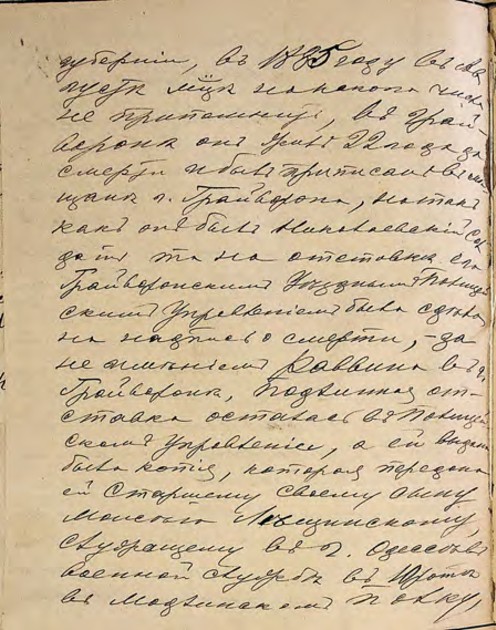 губерніи, въ 1885 году въ Ав
густѣ мцѣ но какого числа
не припомнитъ, въ Грай-
воронѣ онъ жилъ 22 года до
смерти и былъ приписанъ въ мѣ
щане г. Грайворона, но такъ
какъ онъ былъ Николаевскій сол
датъ то на отставкѣ его
Грайворонскимъ Уѣзднымъ Полицей
скимъ Управленіемъ была сдѣлана
надпись о смерти, - за
неимѣніемъ Раввина въ г.
Грайворонѣ, Подлинная от-
ставка осталась въ Полицей
скомъ Управленіи, а ей выдана
была копія, которая передана
ей Старшему своему сыну
Моисею Лещинскому,
служащему въ г. Одессѣ въ
военной службѣ въ 10 ротѣ
въ Модлинскомъ полку,